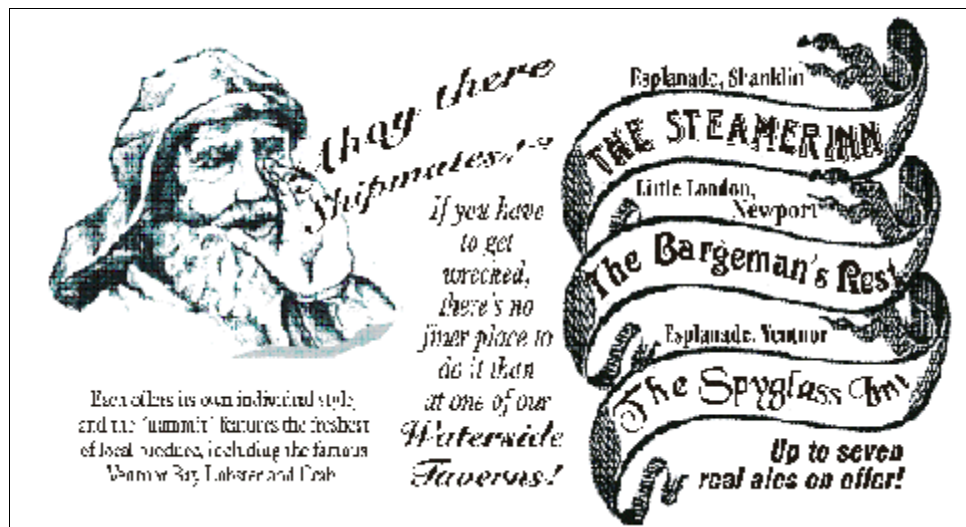 Ahoy there
Shipmates!
If you have
to get
wrecked,
there's no
finer place to
do it than
at one of our
Waterside
Taverns!
Each offers its own individual style,
and the features the freshest
of local produce, including the famous
Ventnor Bay Lobster and Crab
Esplanade, Shanklin
THE STEAMER INN
Little London,
Newport
The Bargeman's Rest
Esplanade, Ventnor
The Spyglass Inn
Up to seven
real ales on offer!